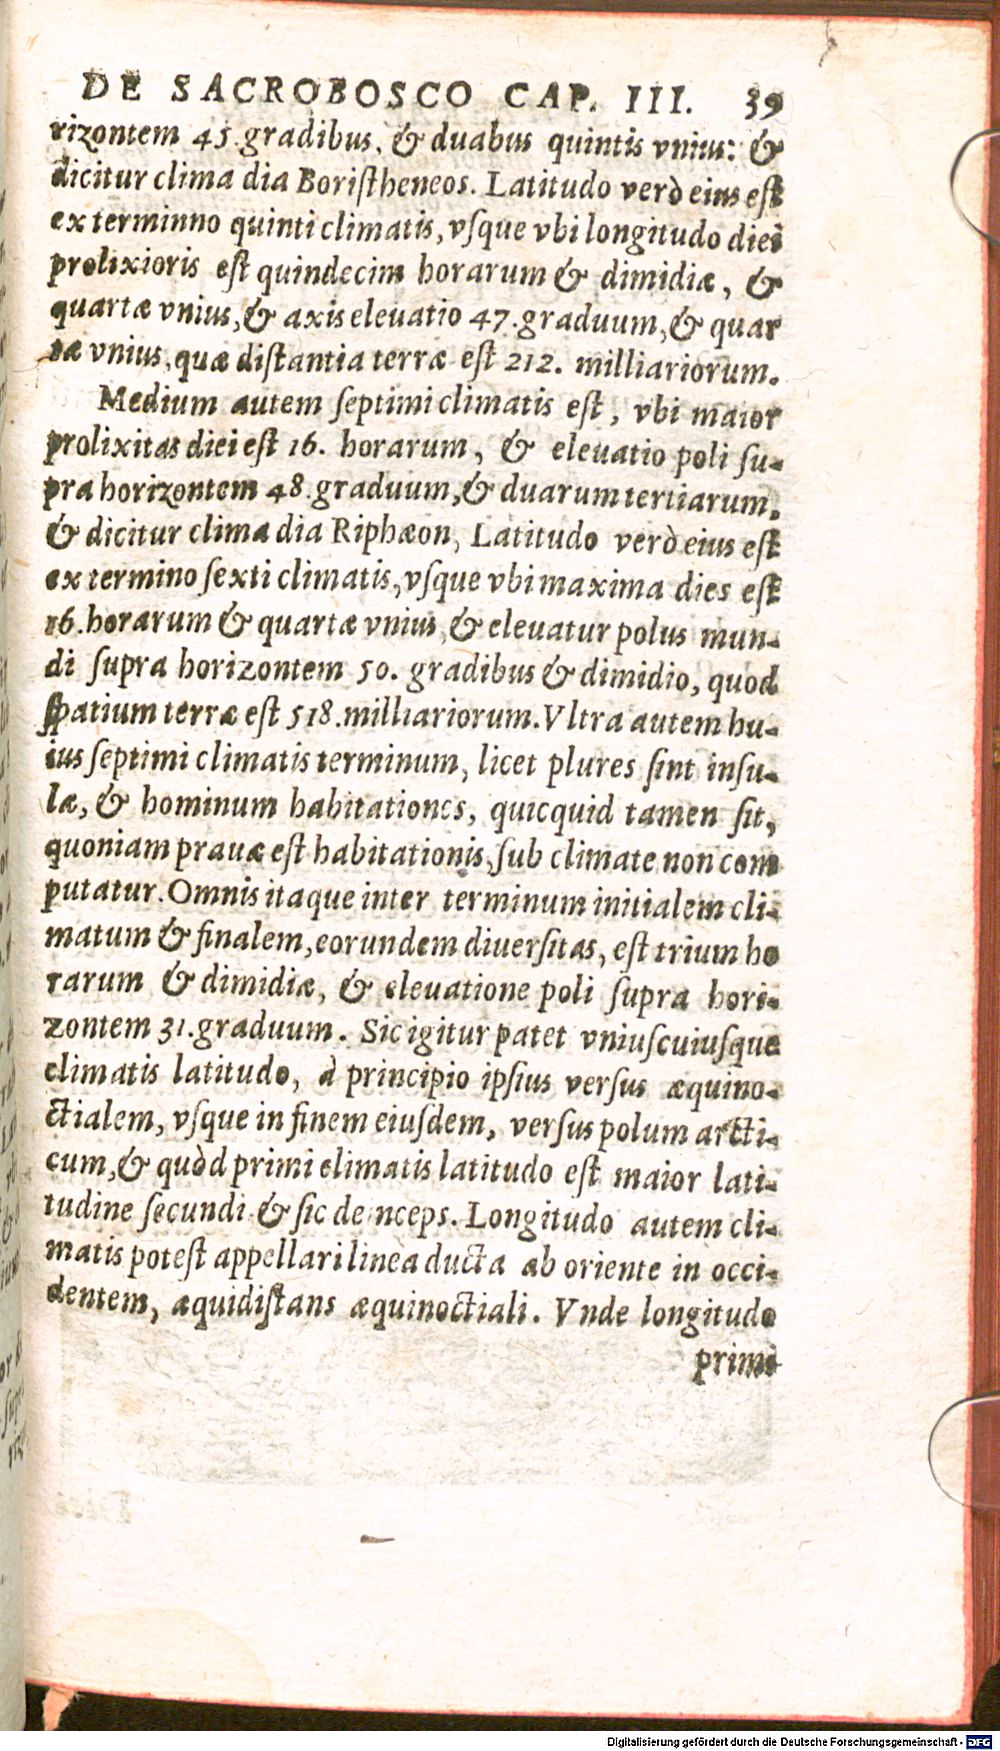 DE SACROBOSCO CAP. III. 39
rizontem 45. gradibus, & duabus quintis vnius: &
dicitur clima dia Boristheneos. Latitudo verò eius est
ex terminno quinti climatis, vsque vbi longitudo diei
prolixioris est quindecim horarum & dimidiæ, &
quartæ vnius, & axis eleuatio 47. graduum, & quar
tæ vnius, quæ distantia terræ est 212. milliariorum.
Medium autem septimi climatis est, vbi maior
prolixitas diei est 16. horarum, & eleuatio poli su-
pra horizontem 48. graduum, & duarum tertiarum,
& dicitur clima dia Riphæon, Latitudo verò eius est
ex termino sexti climatis, vsque vbi maxima dies est
16. horarum & quartæ vnius, & eleuatur polus mun-
di supra horizontem 50. gradibus & dimidio, quod
spatium terræ est 518. milliariorum. Vltra autem hu-
ius septimi climatis terminum, licet plures sint insu-
læ, & hominum habitationes, quicquid tamen sit,
quoniam prauæ est habitationis, sub climate non com
putatur. Omnis itaque inter terminum initialem cli-
matum & finalem, eorundem diuersitas, est trium ho
rarum & dimidiæ, & eleuatione poli supra hori-
zontem 31. graduum. Sic igitur patet vniuscuiusque
climatis latitudo, à principio ipsius versus æquino-
ctialem, vsque in finem eiusdem, versus polum arcti-
cum, & quòd primi climatis latitudo est maior lati-
tudine secundi & sic deinceps. Longitudo autem cli-
matis potest appellari linea ducta ab oriente in occi-
dentem, æquidistans æquinoctiali. Vnde longitudo
primi
Digitalisierung gefördert durch die Deutsche Forschungsgemeinschaft - DFG